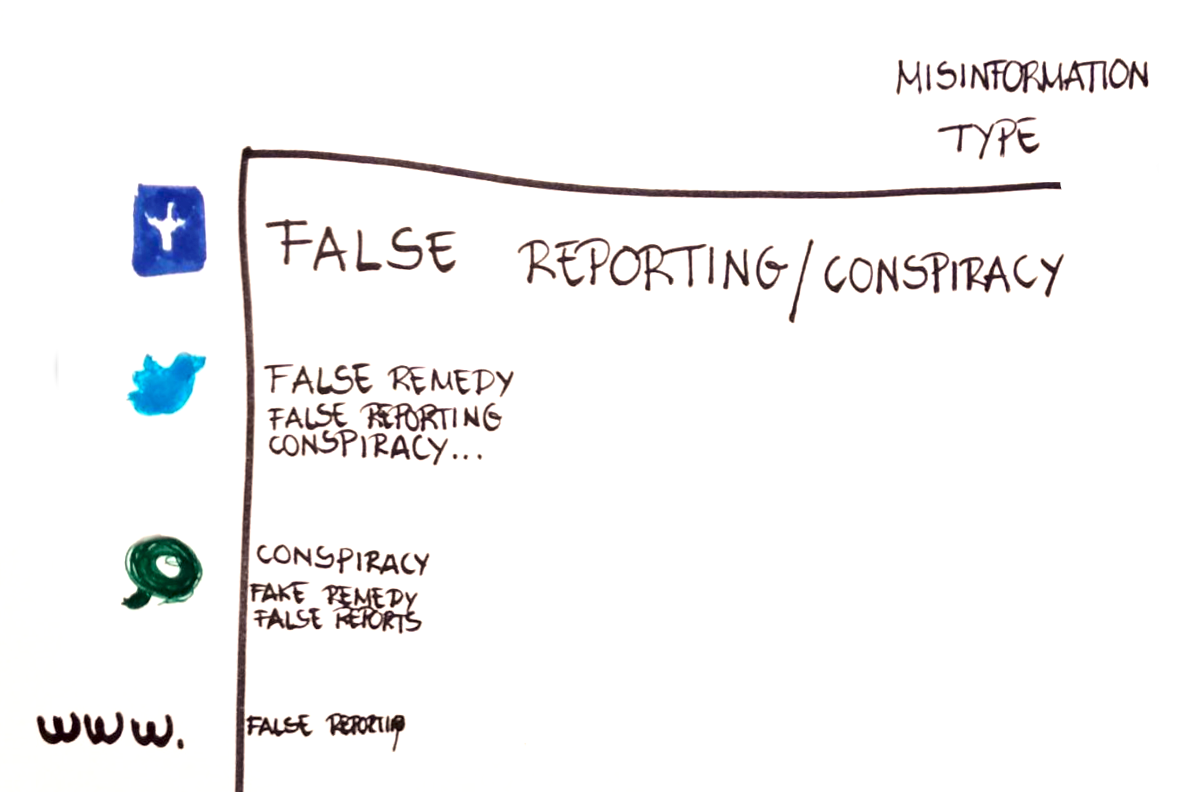 MISINFORMATION
TYPE
FALSE REPORTING/CONSPIRACY
FALSE REMEDY
FALSE REPORTING
CONSPIRACY...
CONSPIRACY
FAKE REMEDY
FALSE REPORTS
www.
FALSE